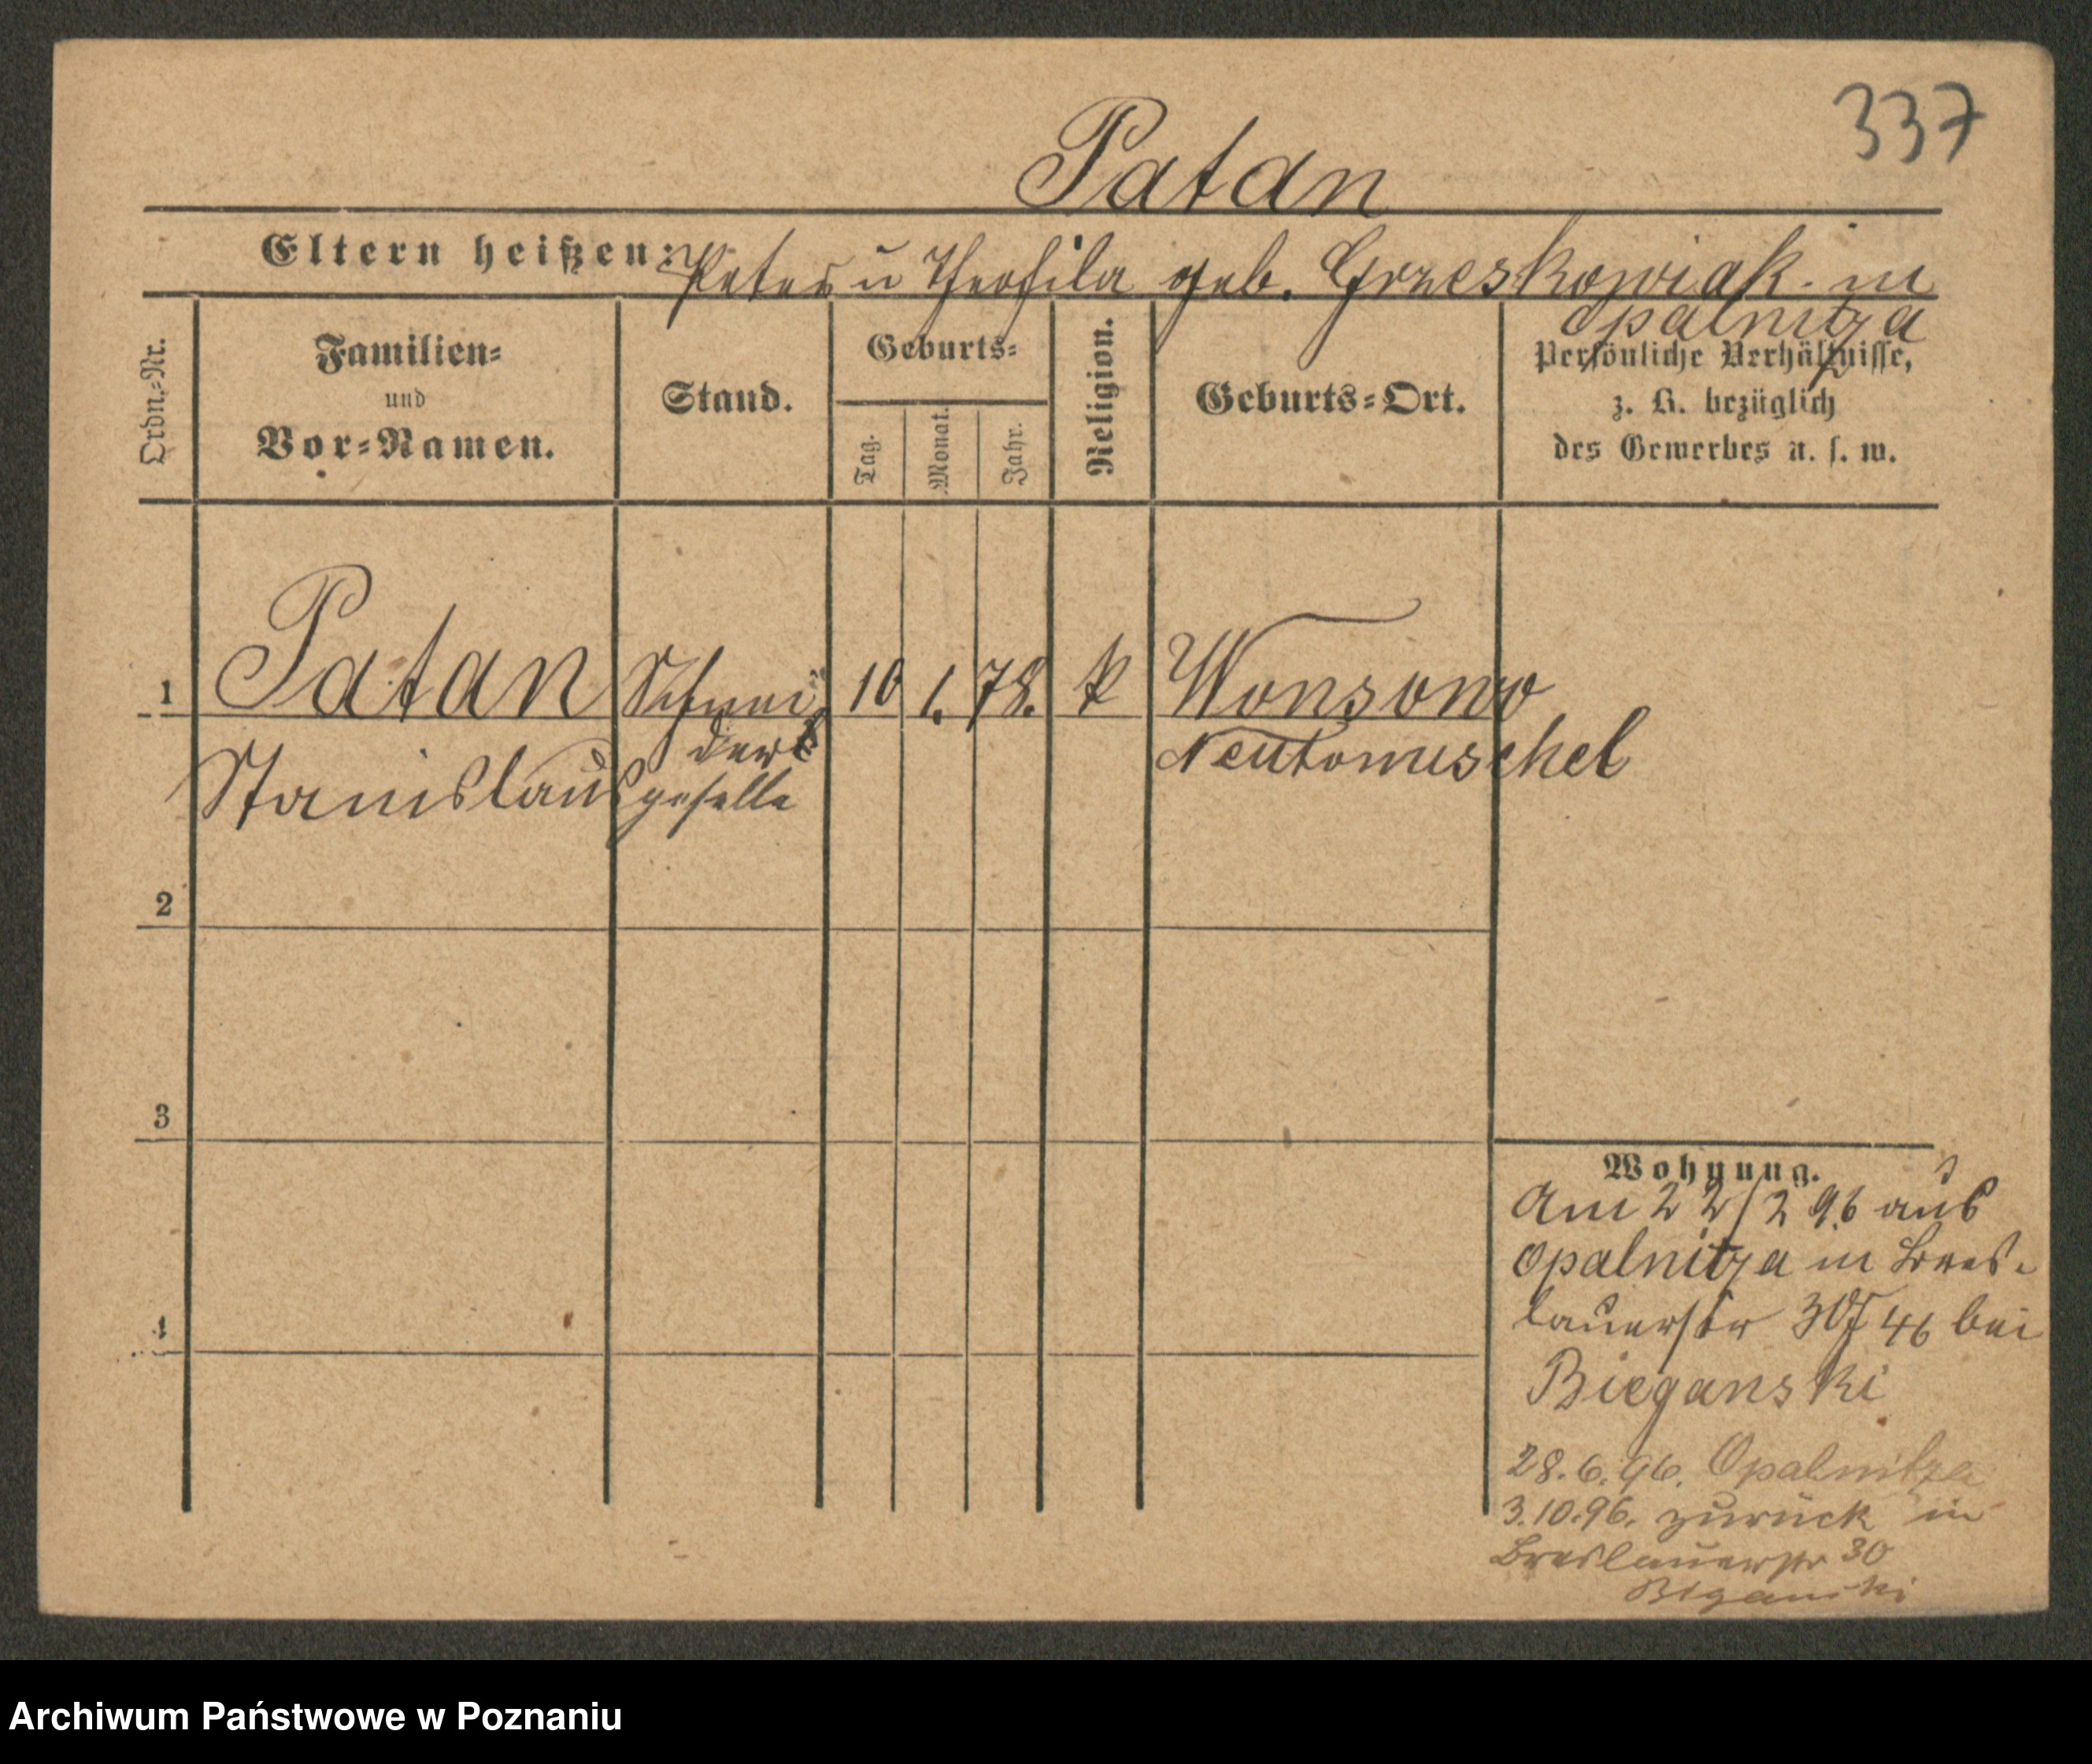 337
Patan
Eltern heißen: Peter u Theofila geb. Grzeskowiak. in
Opalnitza
Ordn.-Nr.
Familien-
und
Vor-Namen.
Stand.
Geburts-
Tag.
Monat.
Jahr.
Religion.
Geburts-Ort.
Persönliche Verhältnisse,
z. B. bezüglich
des Gewerbes u. s. w.
1 Patan Schnei 10 1. 78. k Wonsowo
der Neutomischel
Stanislaus geselle
2
3
4
Wohnung.
Am 22/2 96 aus
Opalnitza in Bres-
lauerstr 30 46 bei
Bieganski
28.6.96. Opalnitza
3.10.96. zurück in
Breslauerstr 30
Biganski
Archiwum Państwowe w Poznaniu